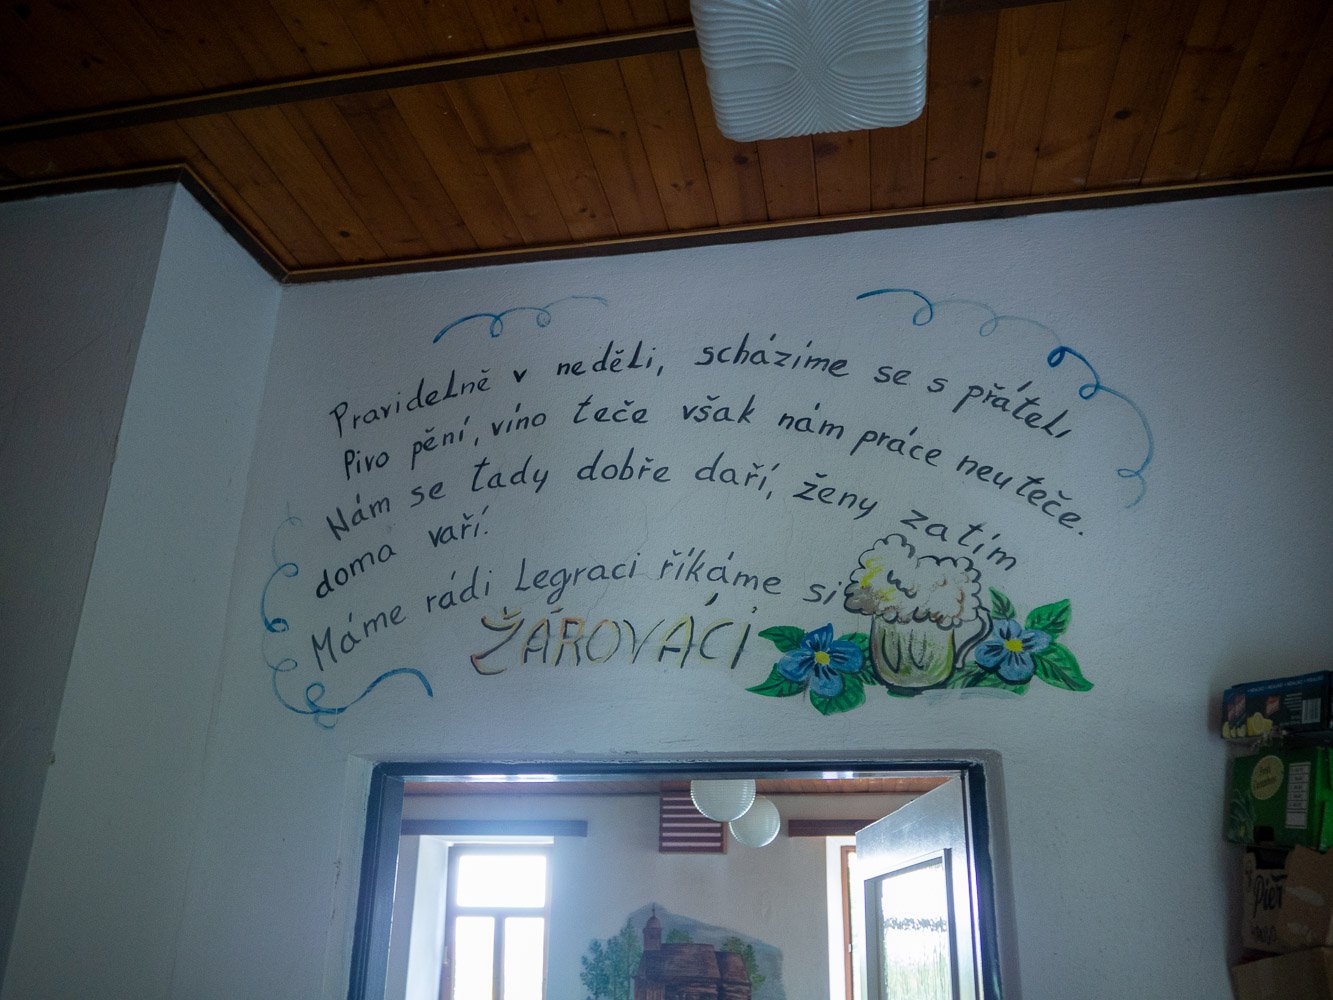 Pravidelně v neděli, scházíme se s přáteli
Pivo pění, víno teče však nám práce neuteče.
Nám se tady dobře daří, ženy zatím
doma vaří.
Máme rádi legraci říkáme si
ŽÁROVÁCI